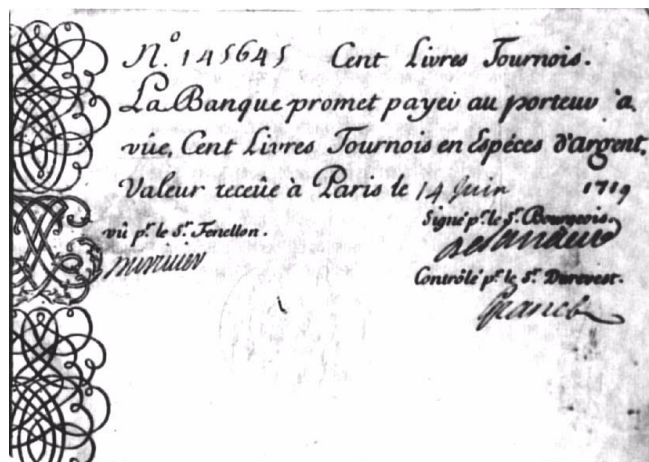 N.º 145645 Cent Livres Tournois.
La Banque promet payer au porteur à
vüe, Cent Livres Tournois en Espéces d'argent,
Valeur receüe à Paris le 14 Juin 1719
vû p.r le S.r Fenellon.
Signé p.r le S.r Bourgeois.
Contrôlé p.r le S.r Durevest.